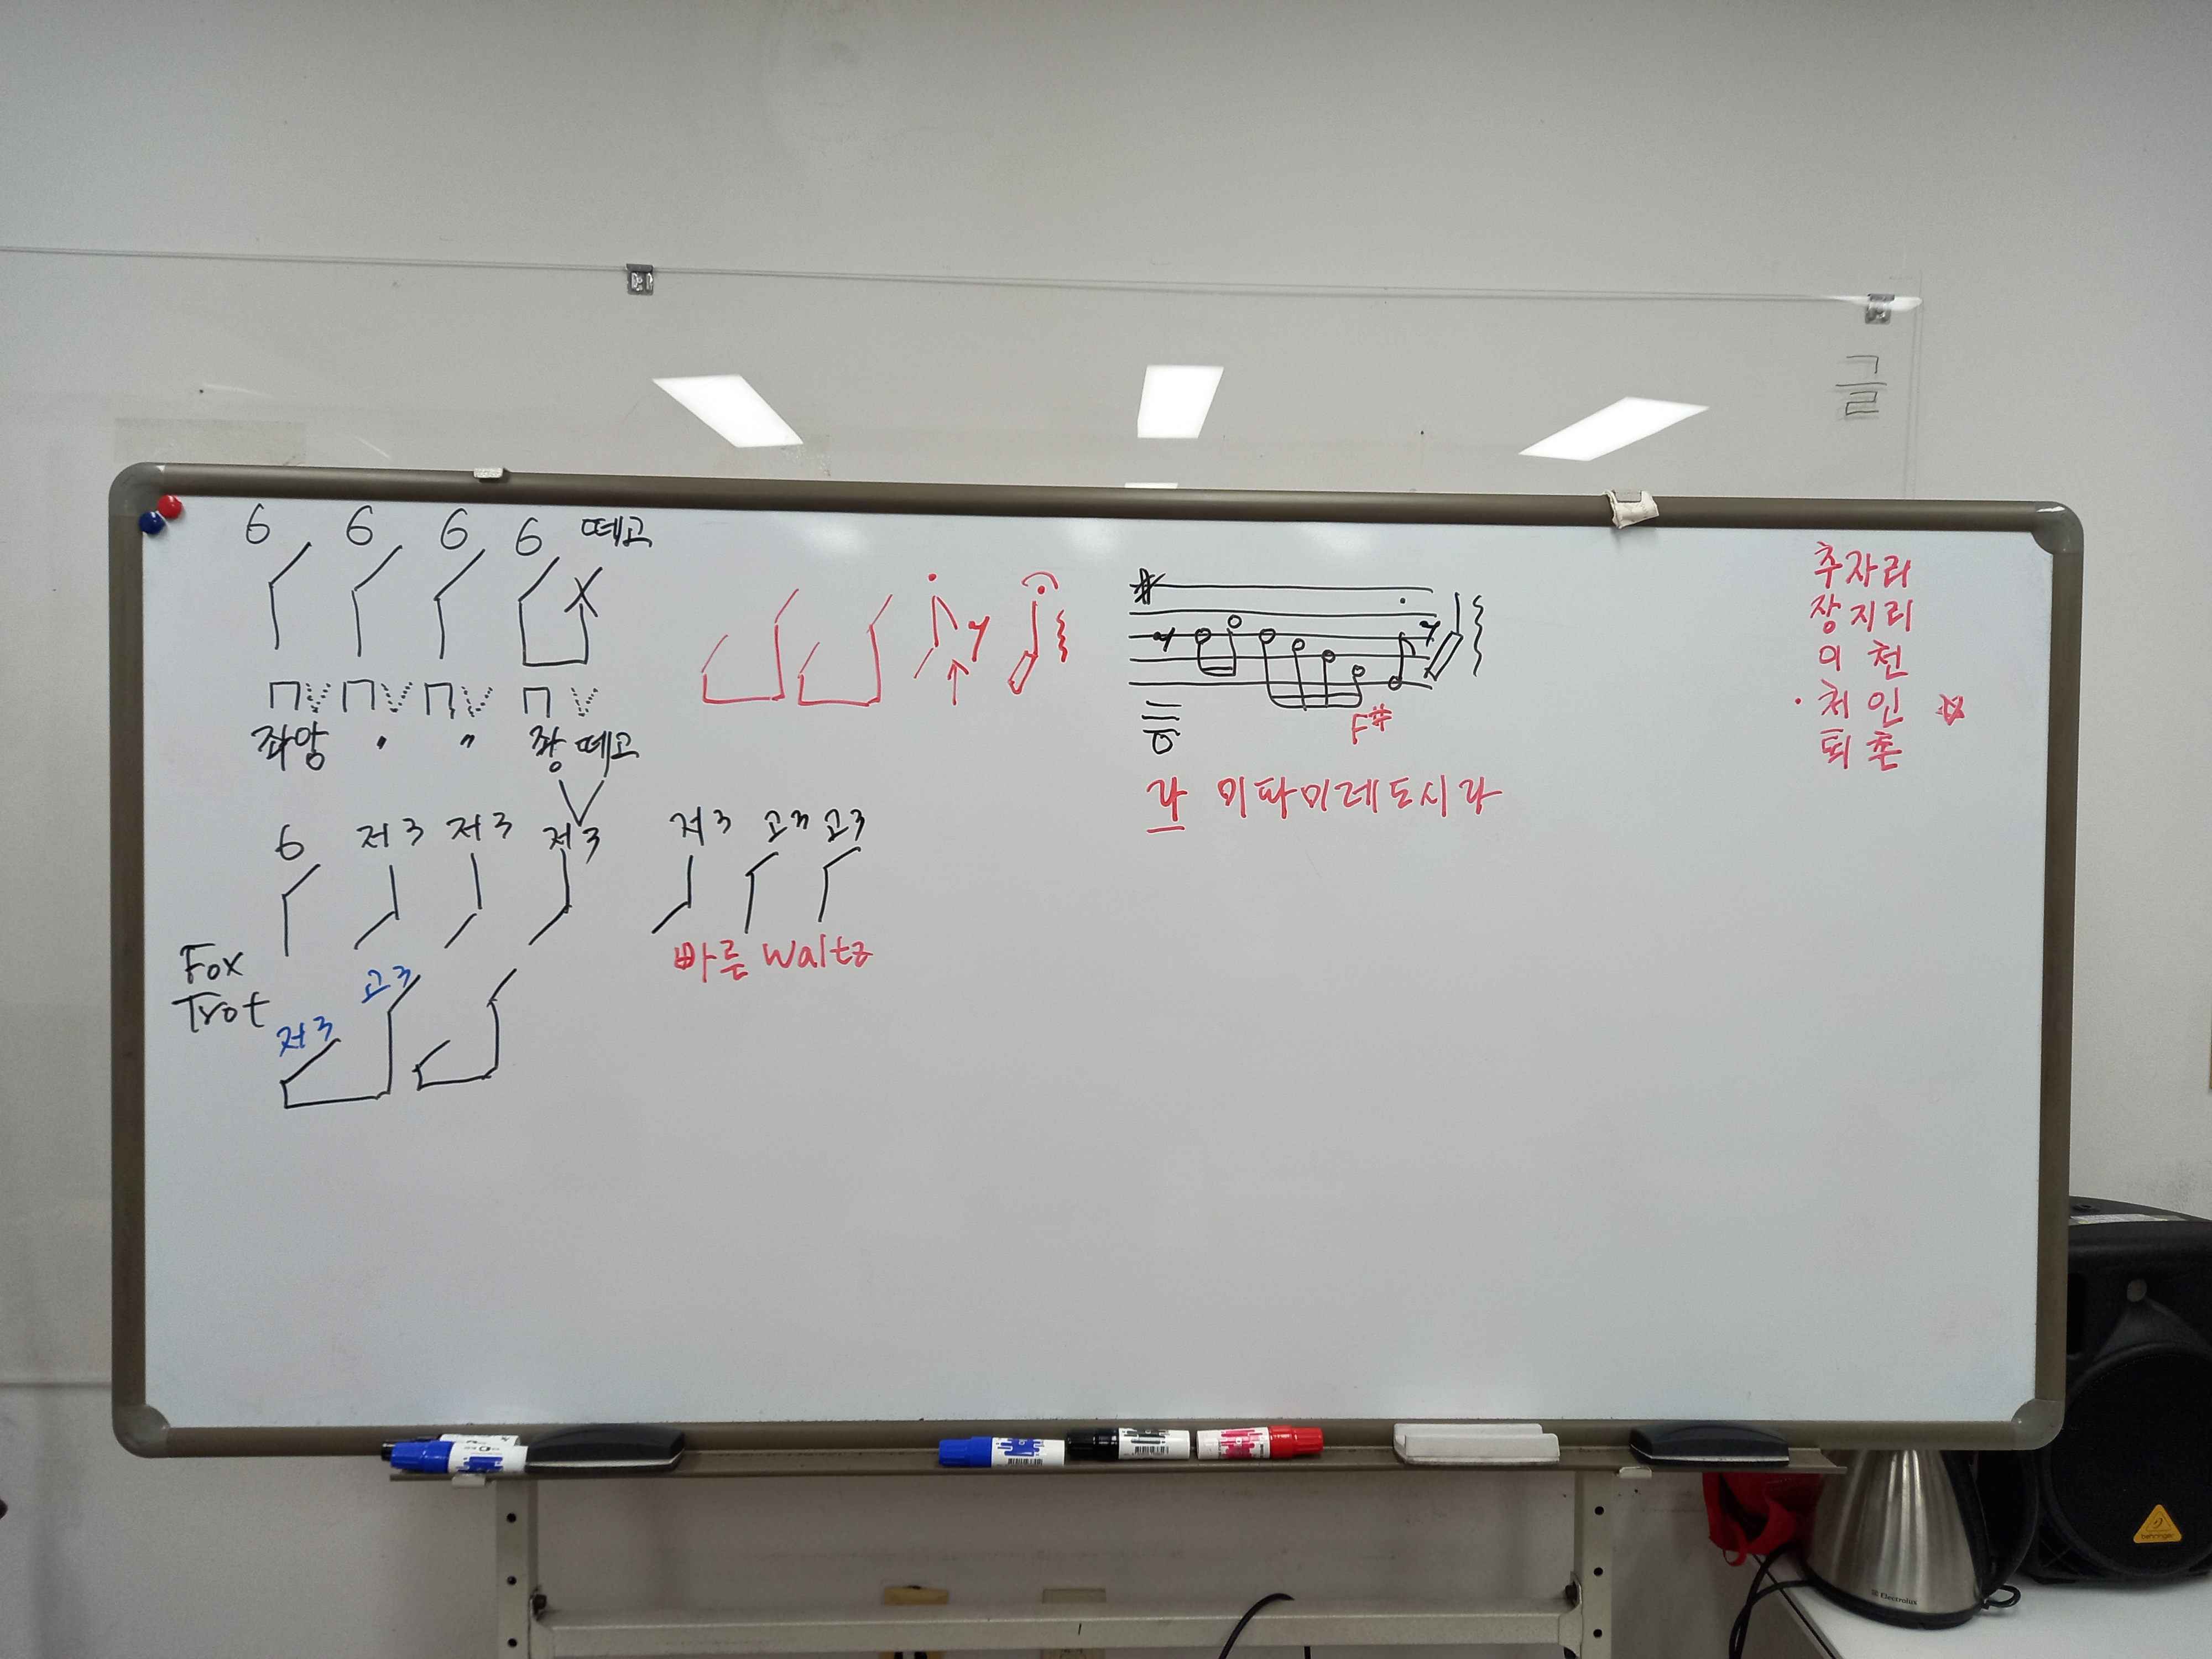 6 6 6 6 떼고
좌앞 〃 〃 좡 떼고
6 저3 저3 저3
저3 고3 고3
빠른 Waltz
Fox
Trot
고3
저3
F#
라 미파미레도시라
추자리
장지리
이천
· 처인 ☆
퇴촌
그
르
behringer
Electrolux